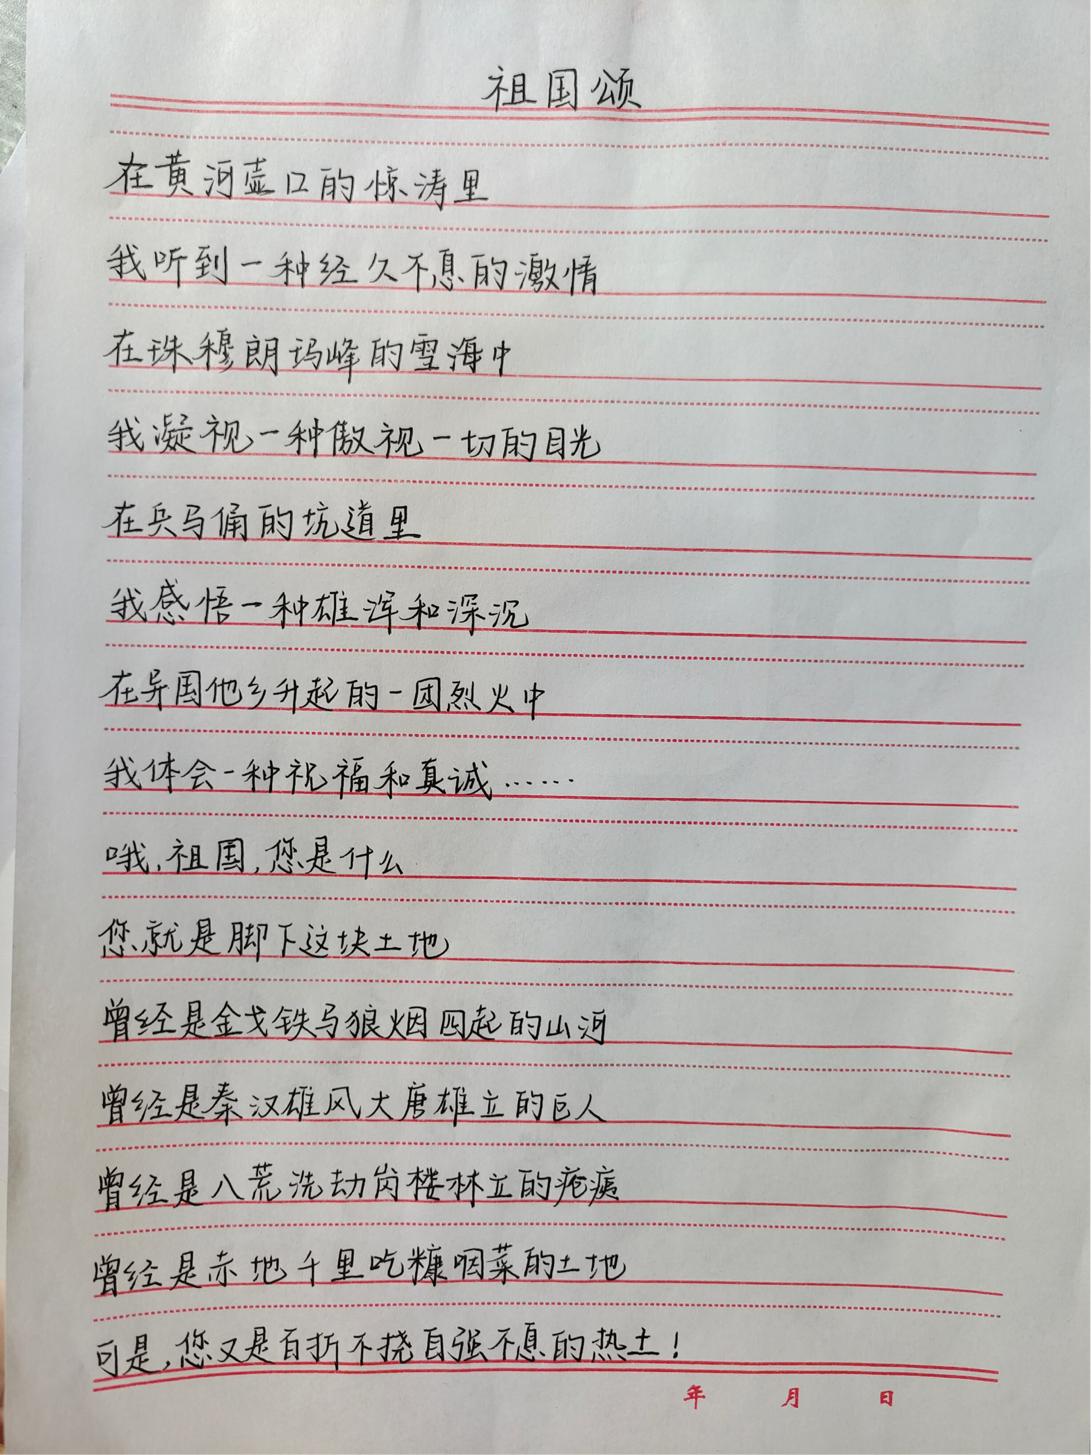 祖国颂
在黄河壶口的惊涛里
我听到一种经久不息的激情
在珠穆朗玛峰的雪海中
我凝视一种傲视一切的目光
在兵马俑的坑道里
我感悟一种雄浑和深沉
在异国他乡升起的一团烈火中
我体会一种祝福和真诚……
哦,祖国,您是什么
您就是脚下这块土地
曾经是金戈铁马狼烟四起的山河
曾经是秦汉雄风大唐雄立的巨人
曾经是八荒洗劫岗楼林立的疮痍
曾经是赤地千里吃糠咽菜的土地
可是,您又是百折不挠自强不息的热土!
年 月 日